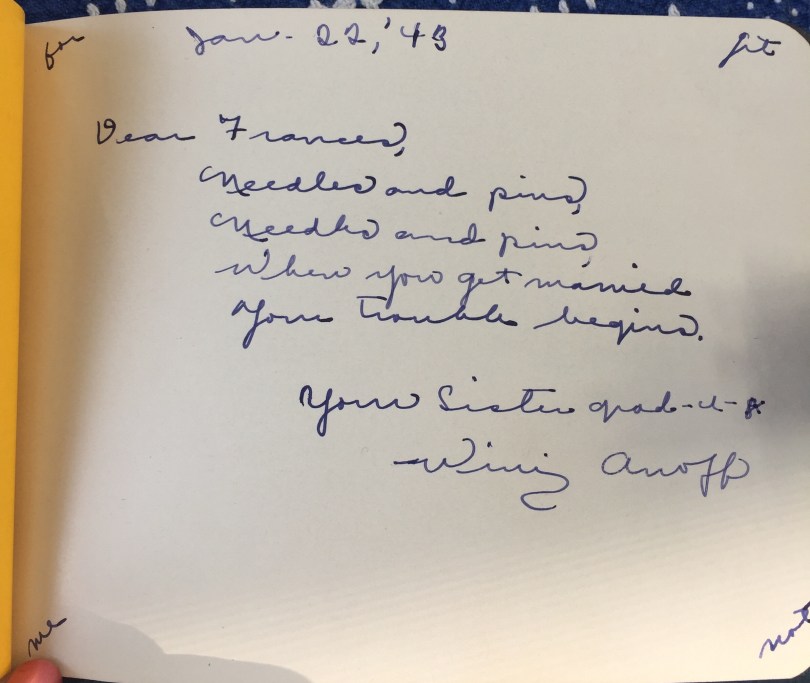 for Jan. 22, '43 get
Dear Frances,
Needles and pins,
Needles and pins,
When you get married
Your trouble begins.
Your Sister grad-u-8
Anoff
me not